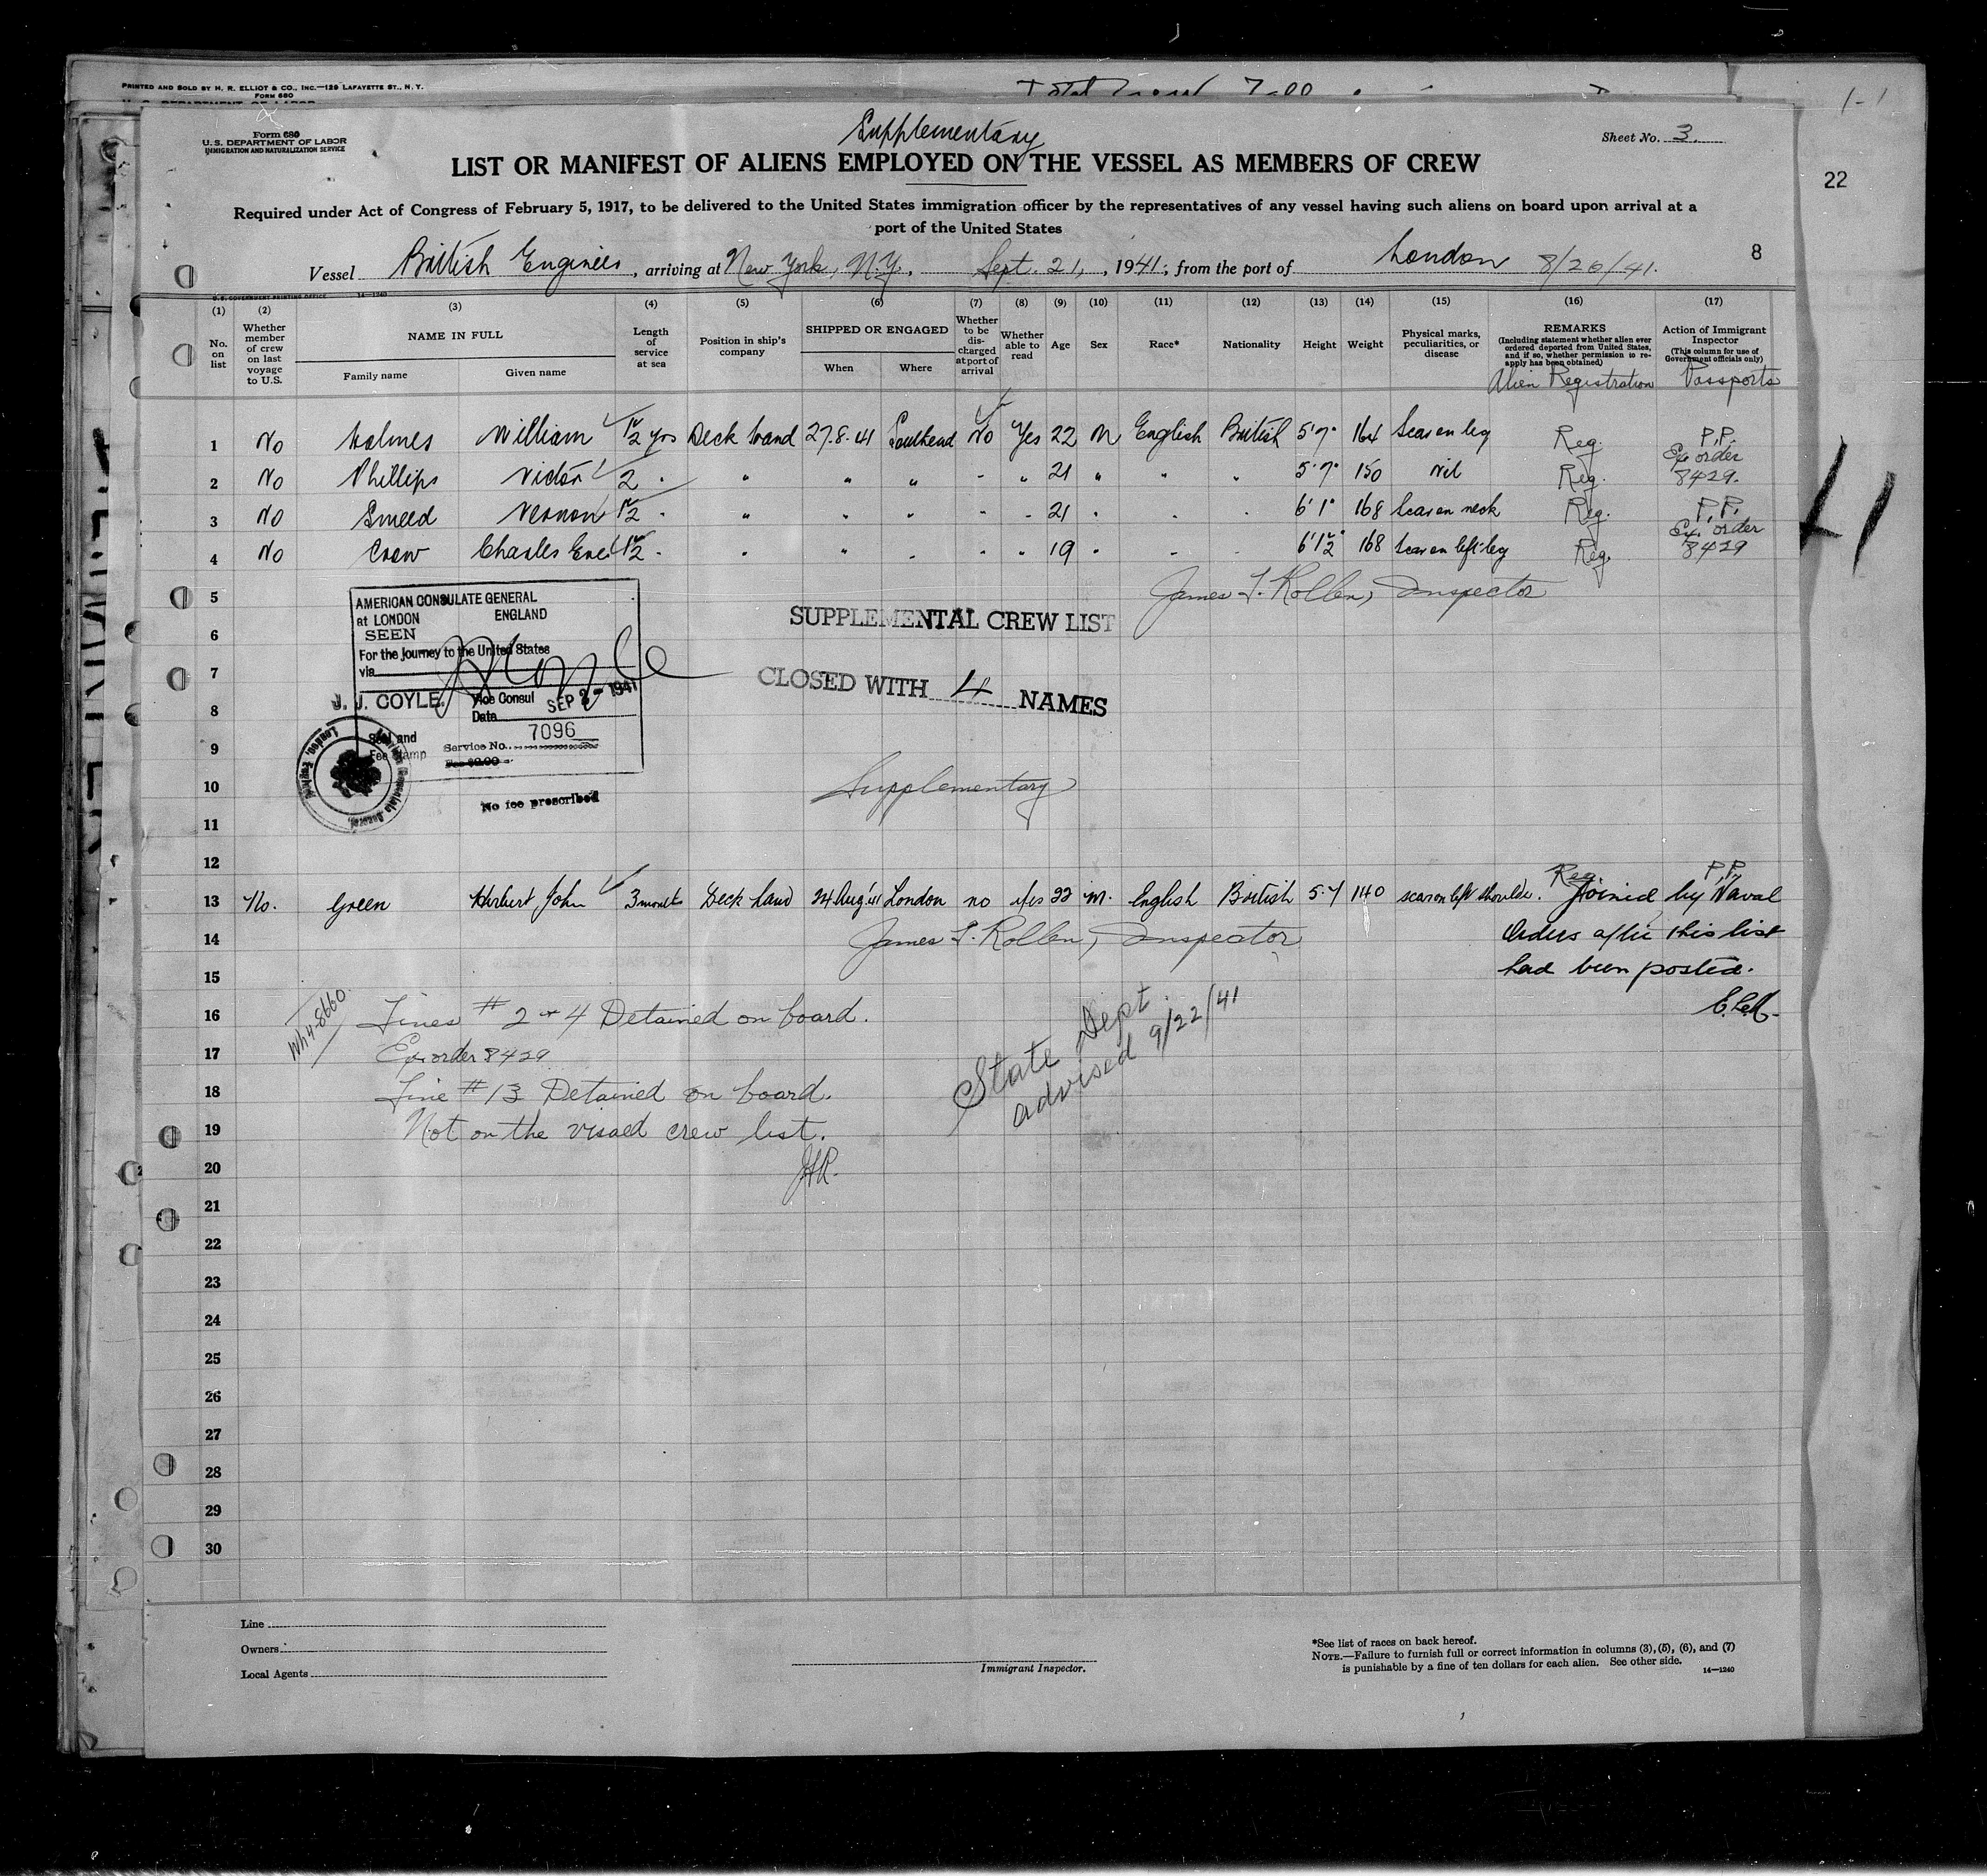 PRINTED AND SOLD BY H. R. ELLIOT & CO., INC.—129 LAFAYETTE ST., N. Y.
FORM 680
22
Form 680
U.S. DEPARTMENT OF LABOR
IMMIGRATION AND NATURALIZATION SERVICE
Supplementary
Sheet No. 3.
LIST OR MANIFEST OF ALIENS EMPLOYED ON THE VESSEL AS MEMBERS OF CREW
Required under Act of Congress of February 5, 1917, to be delivered to the United States immigration officer by the representatives of any vessel having such aliens on board upon arrival at a
port of the United States
8
Vessel British Engineer, arriving at New York, N.Y., Sept. 21, 1941; from the port of London 8/26/41.
U.S. GOVERNMENT PRINTING OFFICE 14—1240
(1) (2) (3) (4) (5) (6) (7) (8) (9) (10) (11) (12) (13) (14) (15) (16) (17)
No. on list
Whether member of crew on last voyage to U.S.
NAME IN FULL
Family name Given name
Length of service at sea
Position in ship's company
SHIPPED OR ENGAGED
When Where
Whether to be discharged at port of arrival
Whether able to read
Age
Sex
Race*
Nationality
Height
Weight
Physical marks, peculiarities, or disease
REMARKS
(Including statement whether alien ever ordered deported from United States, and if so, whether permission to reapply has been obtained)
Alien Registration
Action of Immigrant Inspector
(This column for use of Government officials only)
Passports
1 No Holmes William 1½ yrs Deck hand 27.8.41 Southend No Yes 22 M English British 5'7" 164 Scar on leg Reg. P.P.
Ex order
2 No Phillips Victor 2 " " " " " " 21 " " " 5'7" 150 nil Reg. 8429.
3 No Smeed Vernon 1½ " " " " " " 21 " " " 6'1" 168 Scar on neck Reg. P.P.
Ex. order
4 No Crew Charles Eric 1½ " " " " " " 19 " " " 6'1½" 168 Scar on left leg Reg. 8429
5
James F. Rollen, Inspector
AMERICAN CONSULATE GENERAL
at LONDON ENGLAND
SEEN
For the journey to the United States
via
J. J. COYLE.
Vice Consul
Date SEP 2 - 1941
Seal and
Fee Stamp
Service No. 7096
Fee $0.00
No fee prescribed
SUPPLEMENTAL CREW LIST
CLOSED WITH 4 NAMES
6
7
8
9
10 Supplementary
11
12
13 No. Green Herbert John 3 months Deck hand 24 Aug '41 London no yes 22 M. English British 5.7 140 scar on left shoulder. Reg. P.P. Joined by Naval
14 James F. Rollen, Inspector Orders after this list
15 had been posted.
16 Lines # 2 & 4 Detained on board.
17 Ex. order 8429
18 Line # 13 Detained on board.
19 Not on the visaed crew list.
20 JFR.
State Dept.
advised 9/22/41
21
22
23
24
25
26
27
28
29
30
Line
Owners
Local Agents
Immigrant Inspector.
*See list of races on back hereof.
NOTE.—Failure to furnish full or correct information in columns (3), (5), (6), and (7)
is punishable by a fine of ten dollars for each alien. See other side. 14—1240